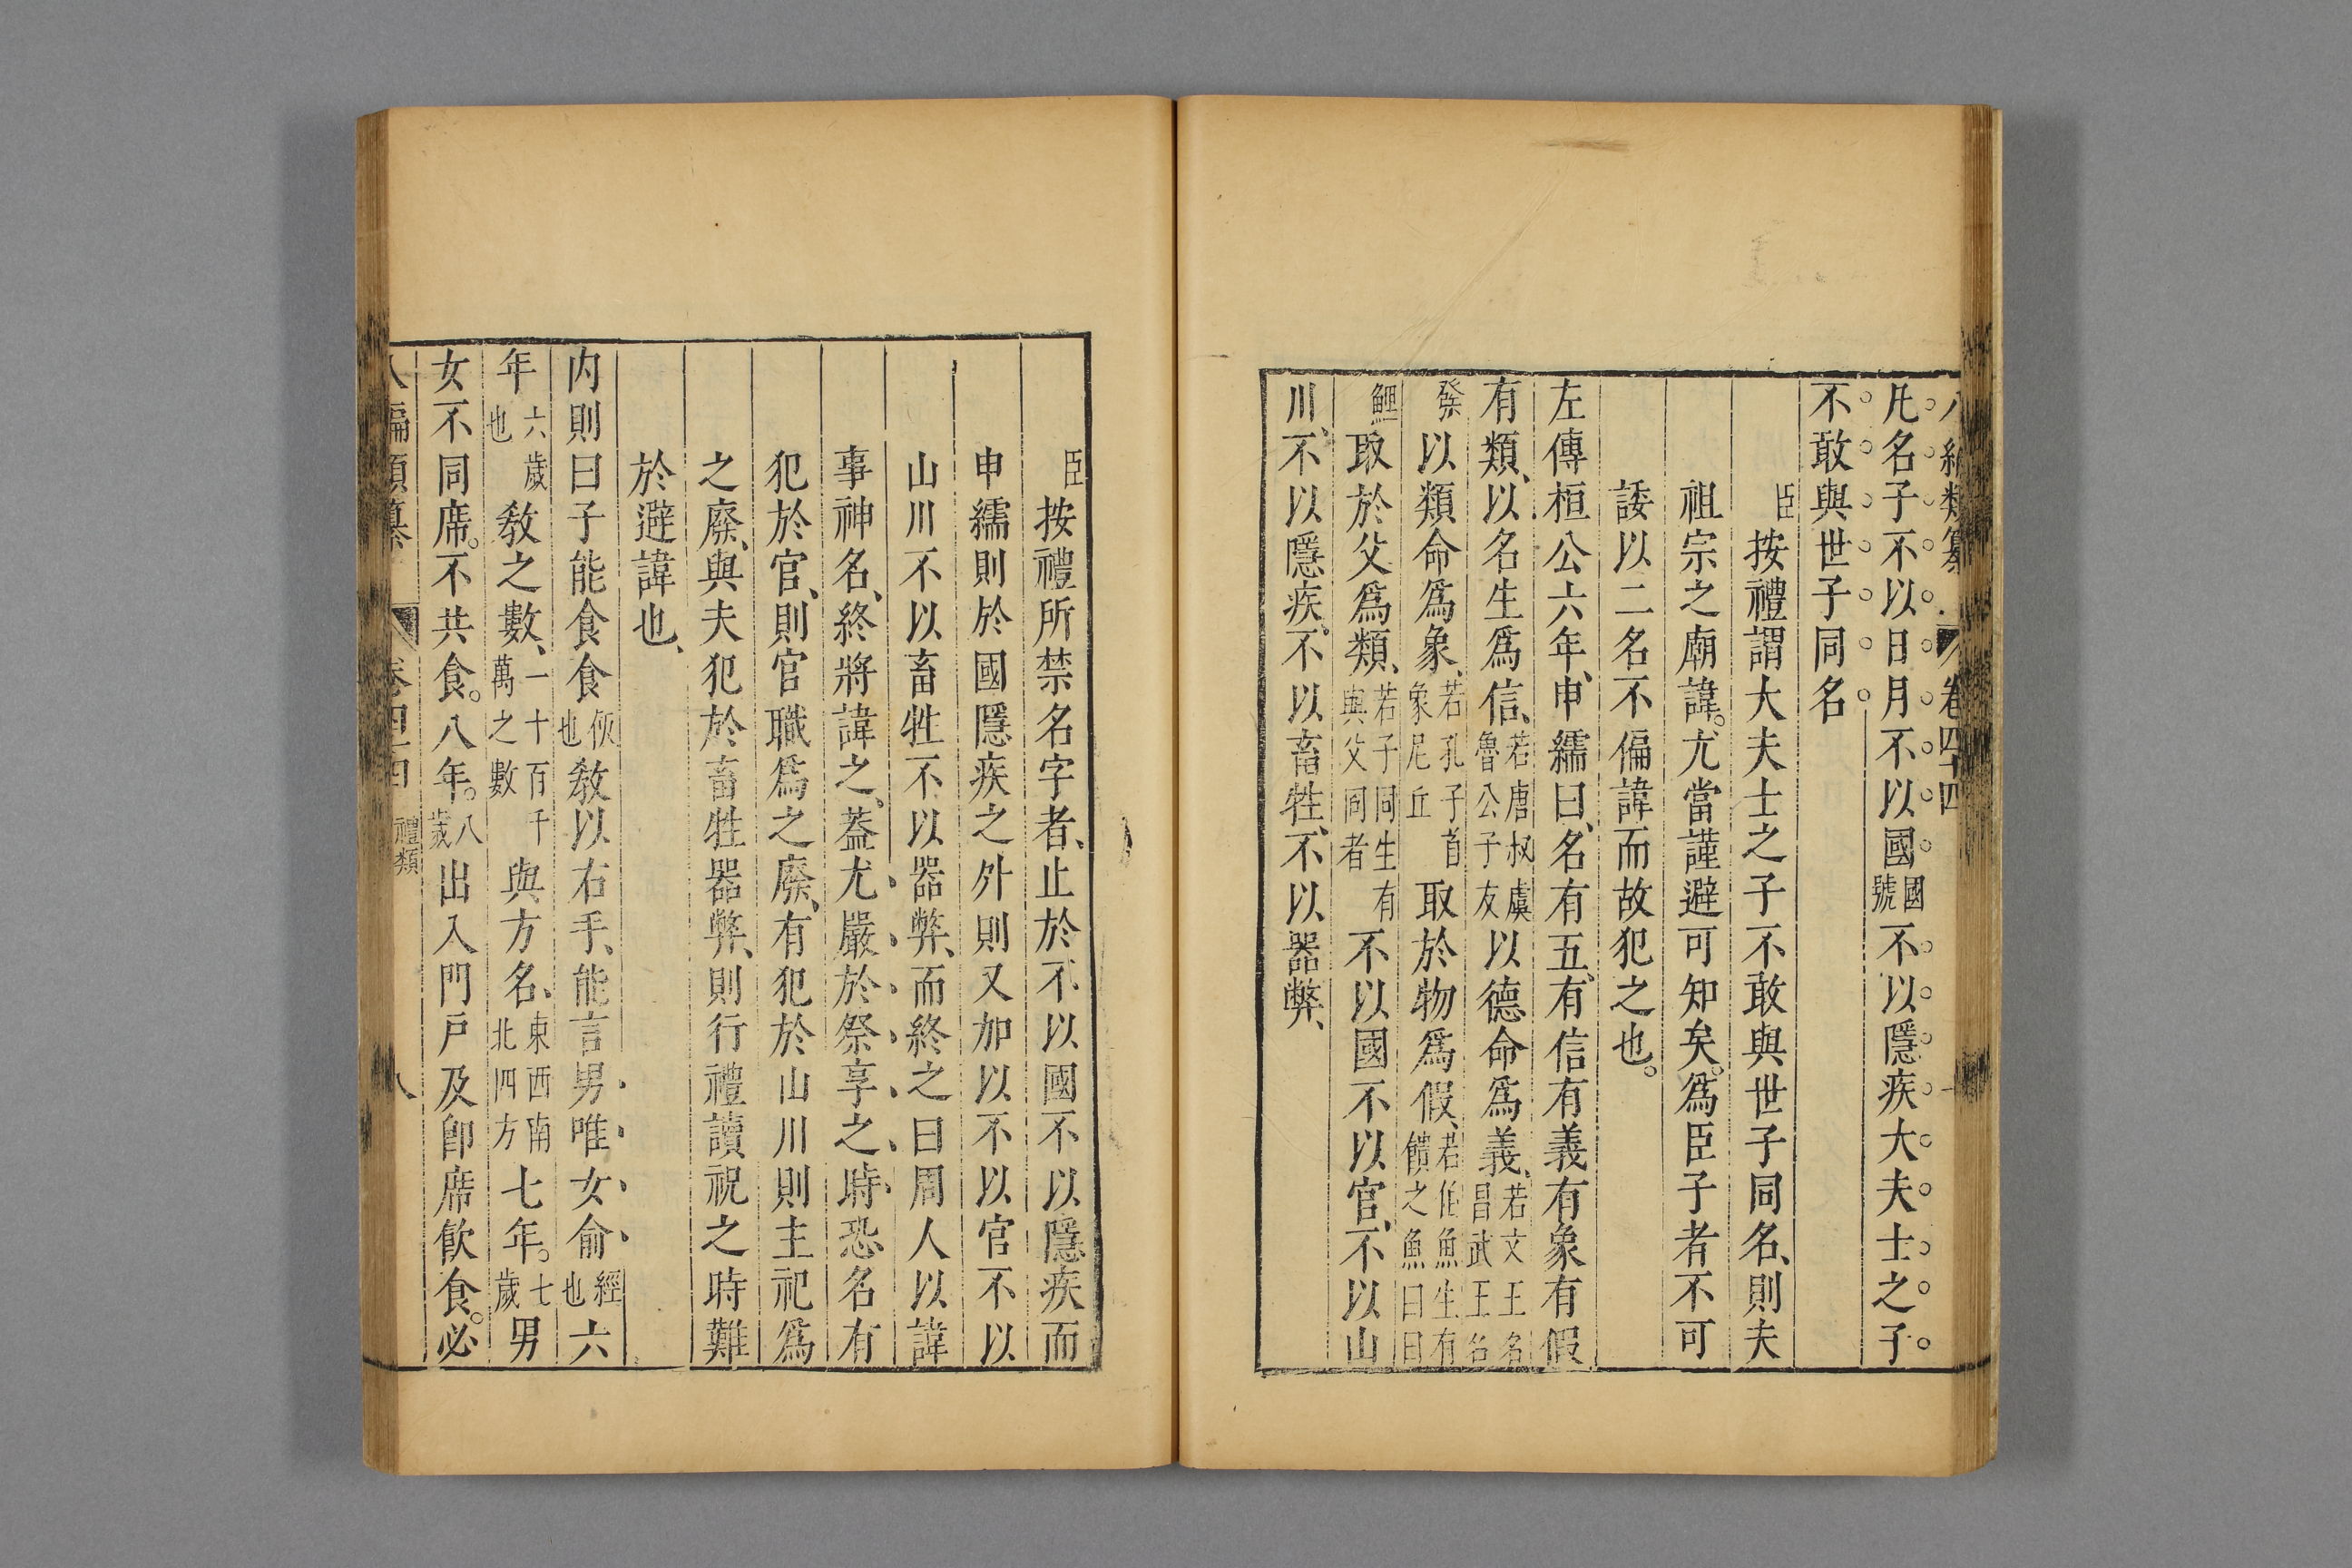 八編類纂 卷四十四
凡名子不以日月不以國國號不以隱疾大夫士之子
不敢與世子同名
臣按禮謂大夫士之子不敢與世子同名則夫
祖宗之廟諱尤當謹避可知矣爲臣子者不可
諉以二名不偏諱而故犯之也
左傳桓公六年申繻曰名有五有信有義有象有假
有類以名生爲信若唐叔虞魯公子友以德命爲義若文王名昌武王名
發以類命爲象若孔子首象尼丘取於物爲假若伯魚生有饋之魚曰曰
鯉取於父爲類若子同生有與父同者不以國不以官不以山
川不以隱疾不以畜牲不以器弊
臣按禮所禁名字者止於不以國不以隱疾而
申繻則於國隱疾之外則又加以不以官不以
山川不以畜牲不以器弊而終之曰周人以諱
事神名終將諱之葢尤嚴於祭享之時恐名有
犯於官則官職爲之廢有犯於山川則主祀爲
之廢與夫犯於畜牲器弊則行禮讀祝之時難
於避諱也
内則曰子能食食飯也教以右手能言男唯女俞經也六
年六歲也教之數一十百千萬之數與方名東西南北四方七年七歲男
女不同席不共食八年八歲出入門戶及卽席飲食必
八編類纂 卷四十四 禮類 八